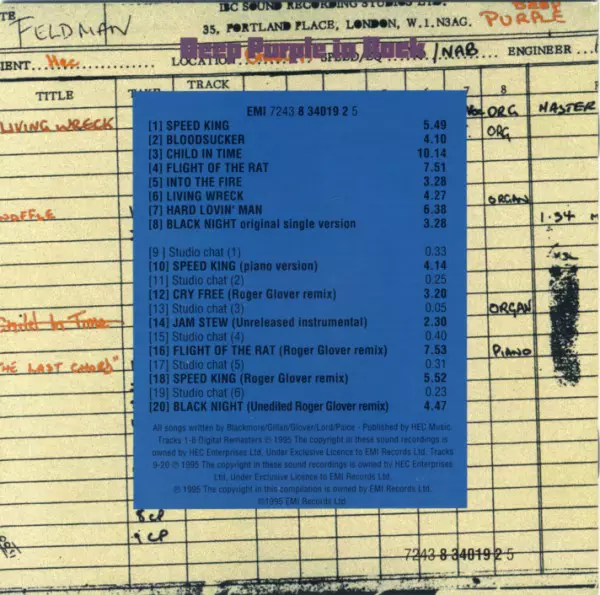 IBC SOUND RECORDING STUDIOS LTD.
35, PORTLAND PLACE, LONDON, W.1.N3AG.
DEEP PURPLE
FELDMAN
Deep Purple in Rock
IENT... Hec
LOCATION
SPEED/EQ
/NAB
ENGINEER
TITLE
TAKE
TRACK
7
8
LIVING WRECK
ORG
MASTER
ORG
ORGAN
1.34
Child In Time
ORGAN
PIANO
HE LAST CHORD"
EMI 7243 8 34019 2 5
[1] SPEED KING 5.49
[2] BLOODSUCKER 4.10
[3] CHILD IN TIME 10.14
[4] FLIGHT OF THE RAT 7.51
[5] INTO THE FIRE 3.28
[6] LIVING WRECK 4.27
[7] HARD LOVIN' MAN 6.38
[8] BLACK NIGHT original single version 3.28
[9] Studio chat (1) 0.33
[10] SPEED KING (piano version) 4.14
[11] Studio chat (2) 0.25
[12] CRY FREE (Roger Glover remix) 3.20
[13] Studio chat (3) 0.05
[14] JAM STEW (Unreleased instrumental) 2.30
[15] Studio chat (4) 0.40
[16] FLIGHT OF THE RAT (Roger Glover remix) 7.53
[17] Studio chat (5) 0.31
[18] SPEED KING (Roger Glover remix) 5.52
[19] Studio chat (6) 0.23
[20] BLACK NIGHT (Unedited Roger Glover remix) 4.47
All songs written by Blackmore/Gillan/Glover/Lord/Paice - Published by HEC Music.
Tracks 1-8 Digital Remasters ℗ 1995 The copyright in these sound recordings is
owned by HEC Enterprises Ltd, Under Exclusive Licence to EMI Records Ltd. Tracks
9-20 ℗ 1995 The copyright in these sound recordings is owned by HEC Enterprises
Ltd, Under Exclusive Licence to EMI Records Ltd.
℗ 1995 The copyright in this compilation is owned by EMI Records Ltd.
©1995 EMI Records Ltd
7243 8 34019 2 5